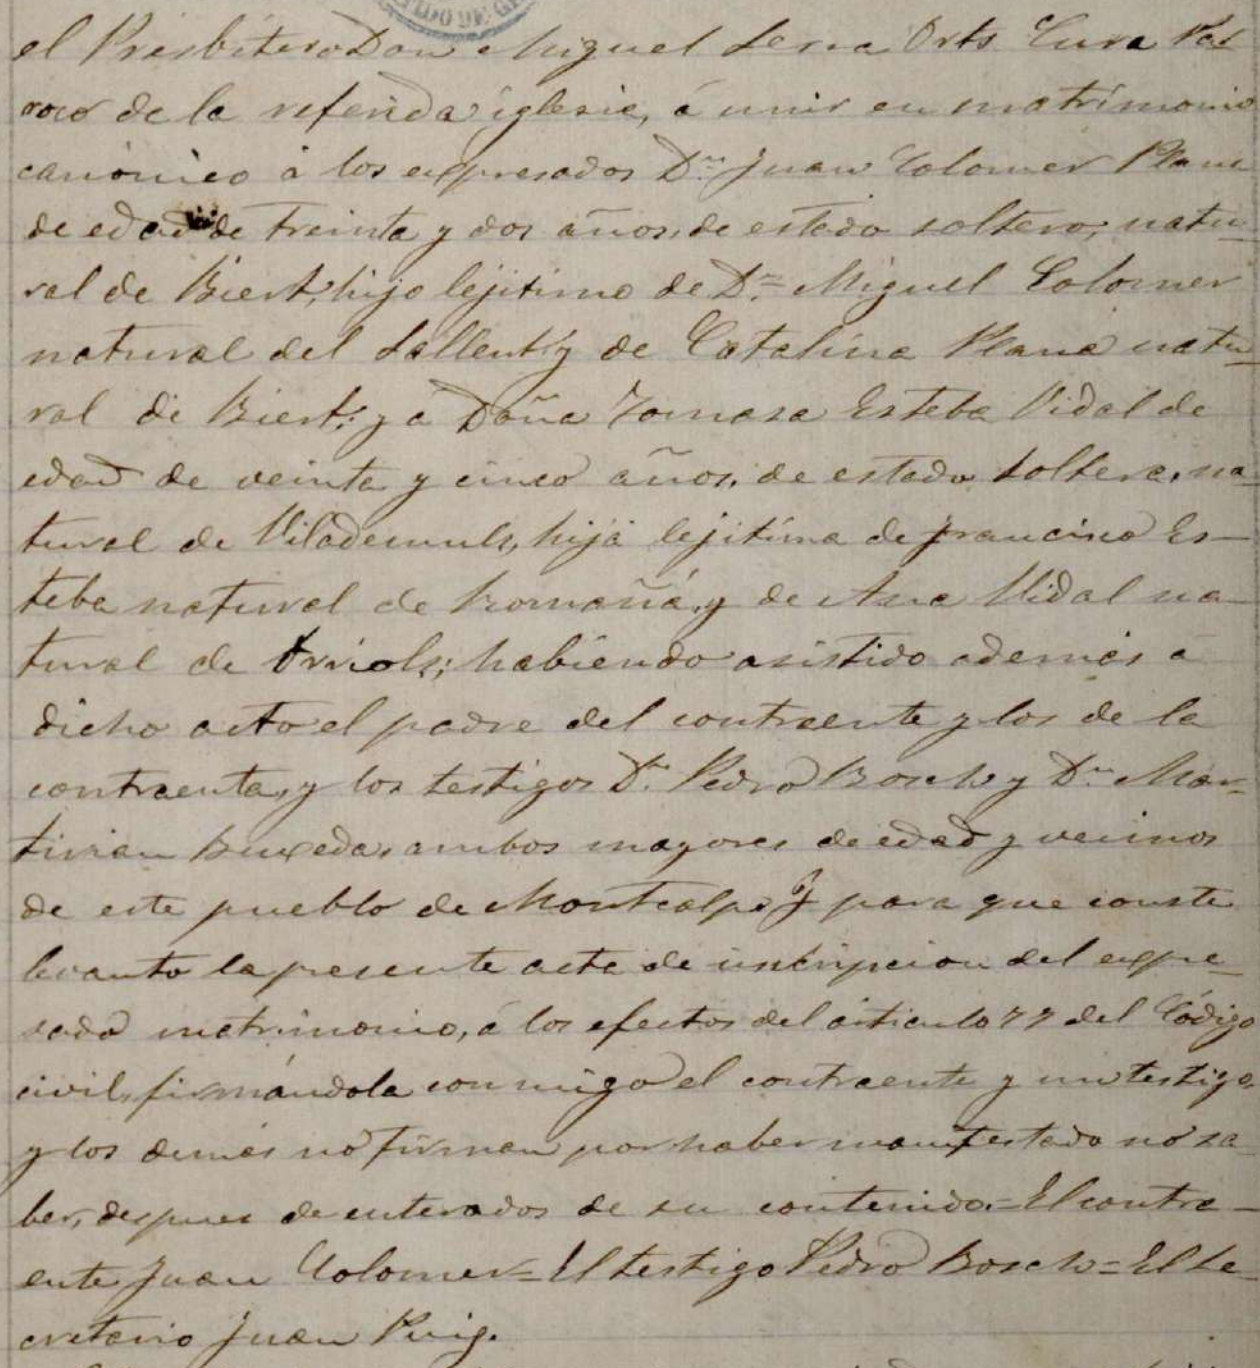 el Presbítero Don Miguel Serra Orts Cura Pár
roco de la referida iglesia, á unir en matrimonio
canónico á los expresados Dn. Juan Colomer Plana
de edad de treinta y dos años, de estado soltero, natu-
ral de Biert, hijo lejitimo de Dn. Miguel Colomer
natural del Sallent y de Catalina Plana natu-
ral de Biert; y a Doña Tomasa Esteba Vidal de
edad de veinte y cinco años, de estado soltera, na-
tural de Vilademuls, hija lejitima de Francisco Es-
teba natural de Romañá, y de Ana Vidal na-
tural de Orriols; habiendo asistido además a
dicho acto el padre del contraente y los de la
contraenta, y los testigos Dn. Pedro Bosch y Dn. Mar-
tirian Buxeda, ambos mayores de edad y vecinos
de este pueblo de Montcalp. Y para que conste
levanto la presente acta de inscripcion del expre-
sado matrimonio, á los efectos del articulo 77 del Código
civil, firmándola conmigo el contraente y un testigo,
y los demás no firman por haber manifestado no sa-
ber, despues de enterados de su contenido.=El contra-
ente Juan Colomer=El testigo Pedro Bosch=El Se-
cretario Juan Puig.